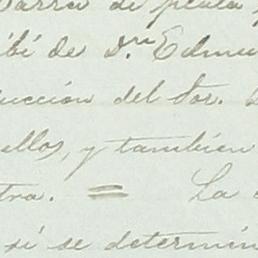 barra de plata y
ibí de Dn. Edmu
ducción del Sor.
ellos, y también
tra. = La
si se determin